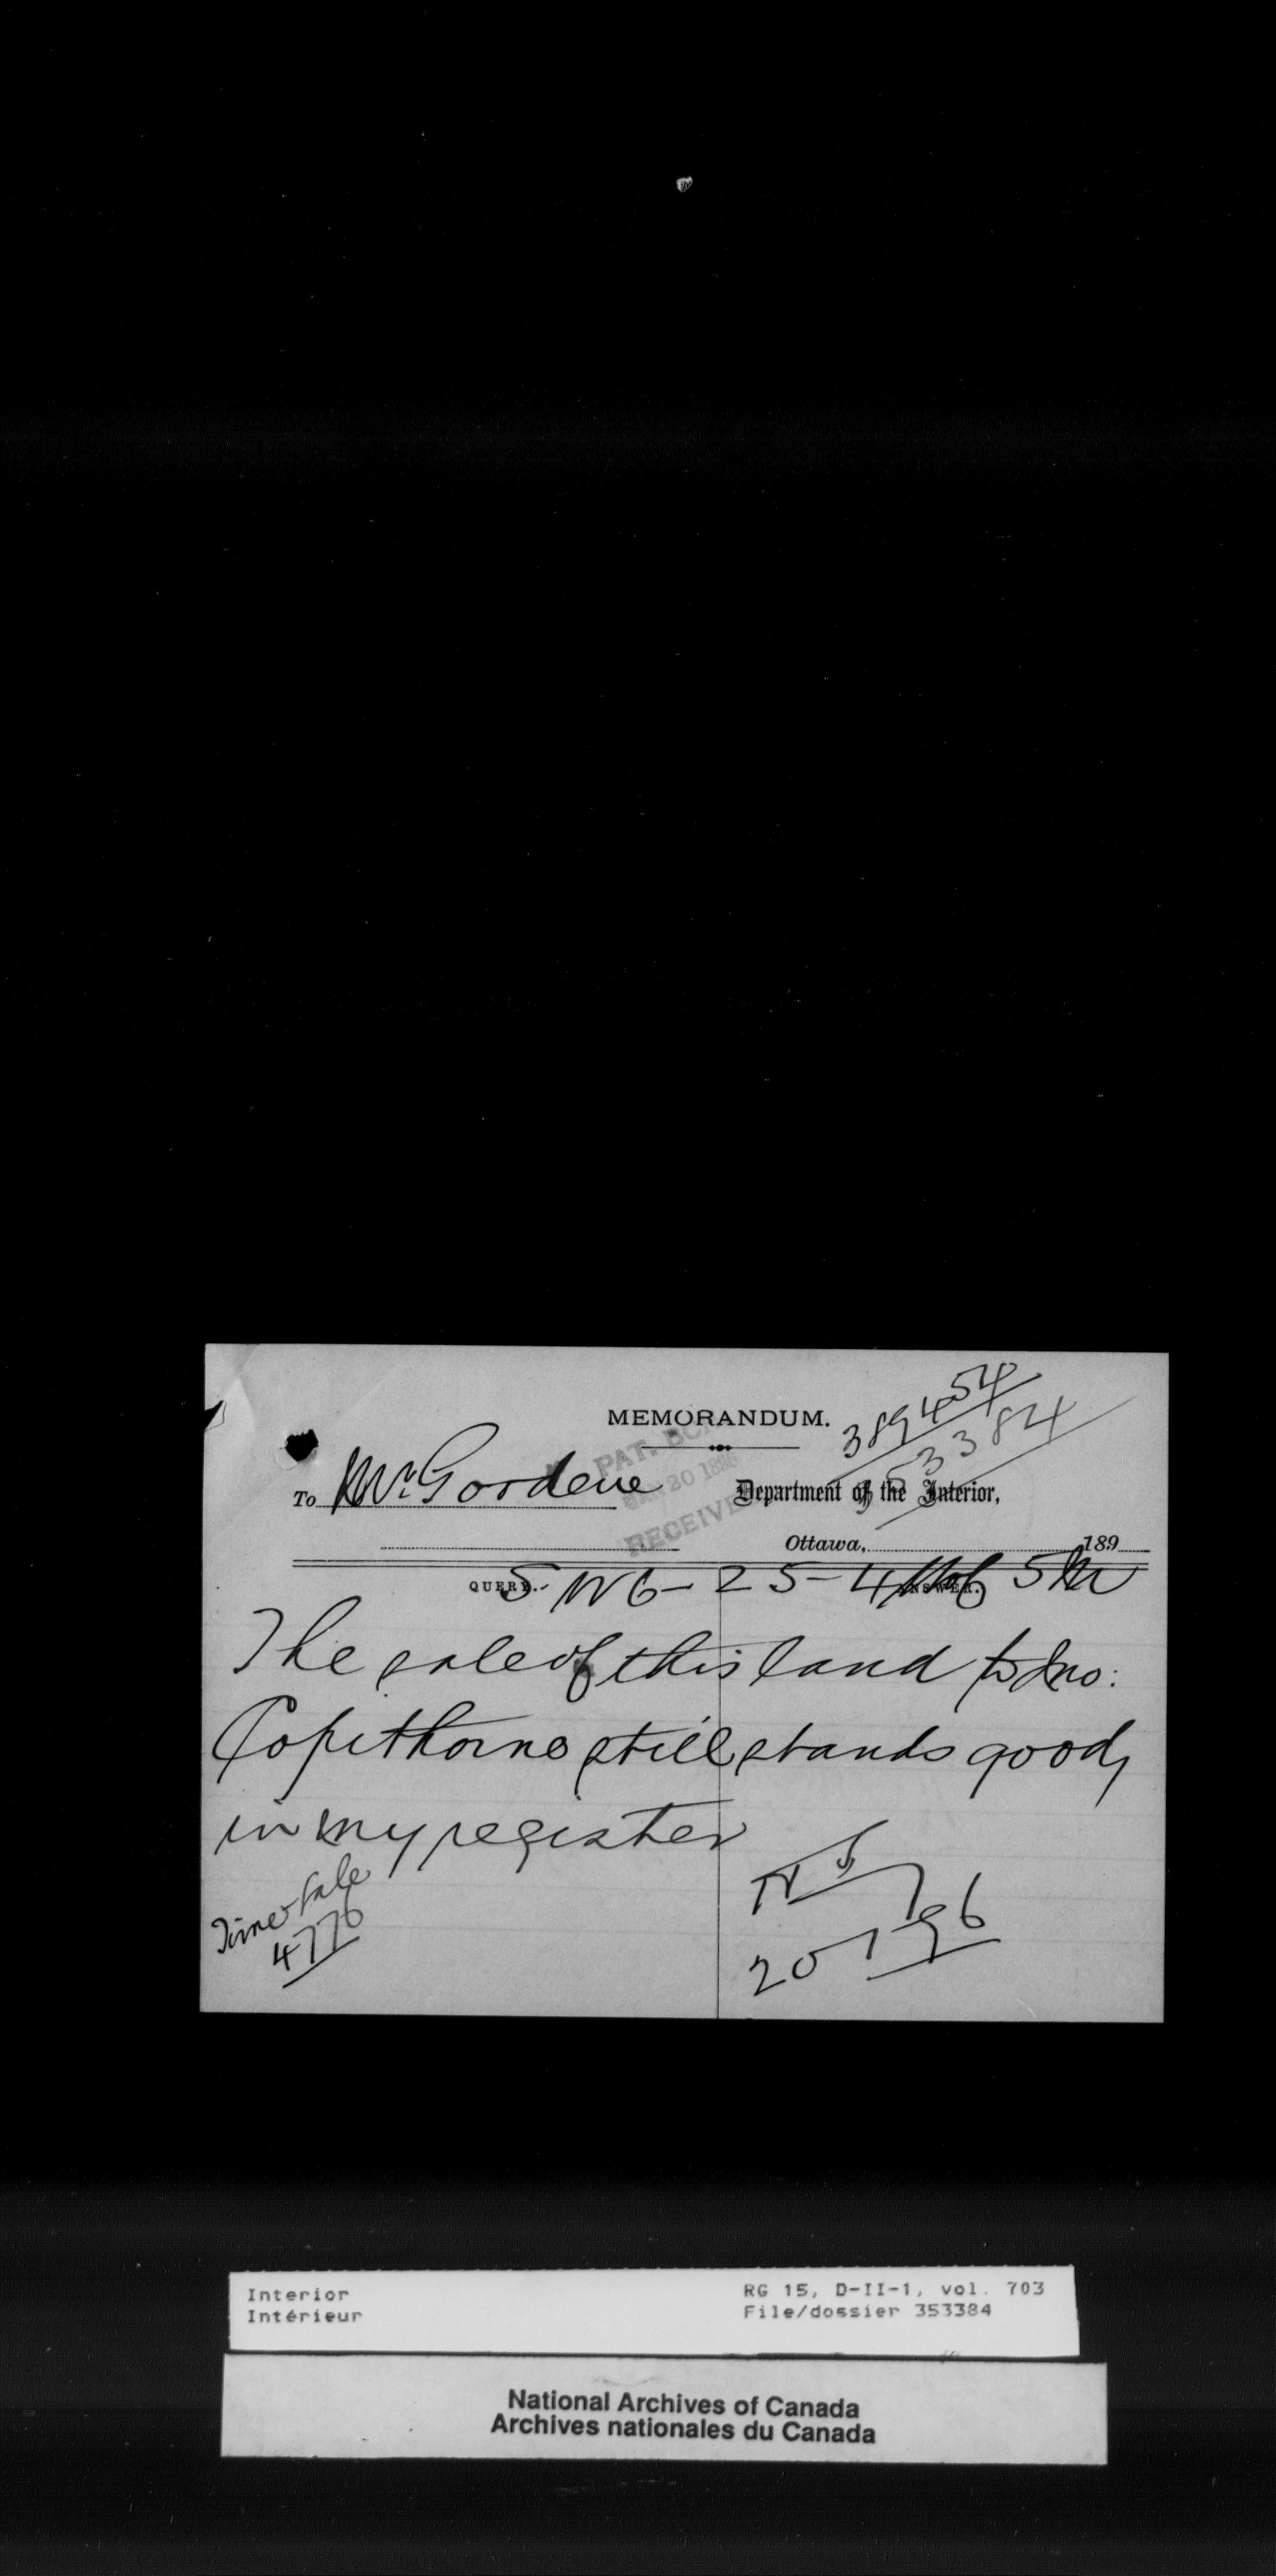 MEMORANDUM.
389454
353384
To Mr. Gordene
Department of the Interior,
PAT.
20 1896
RECEIVED
Ottawa, 189
QUERY. ANSWER.
S W 6 - 25 - 4 W of 5 M
The sale of this land to Jno:
Copithorne still stands good,
in my register
Time Sale
4776
20 / 7 96
Interior
Intérieur
RG 15, D-II-1, vol. 703
File/dossier 353384
National Archives of Canada
Archives nationales du Canada